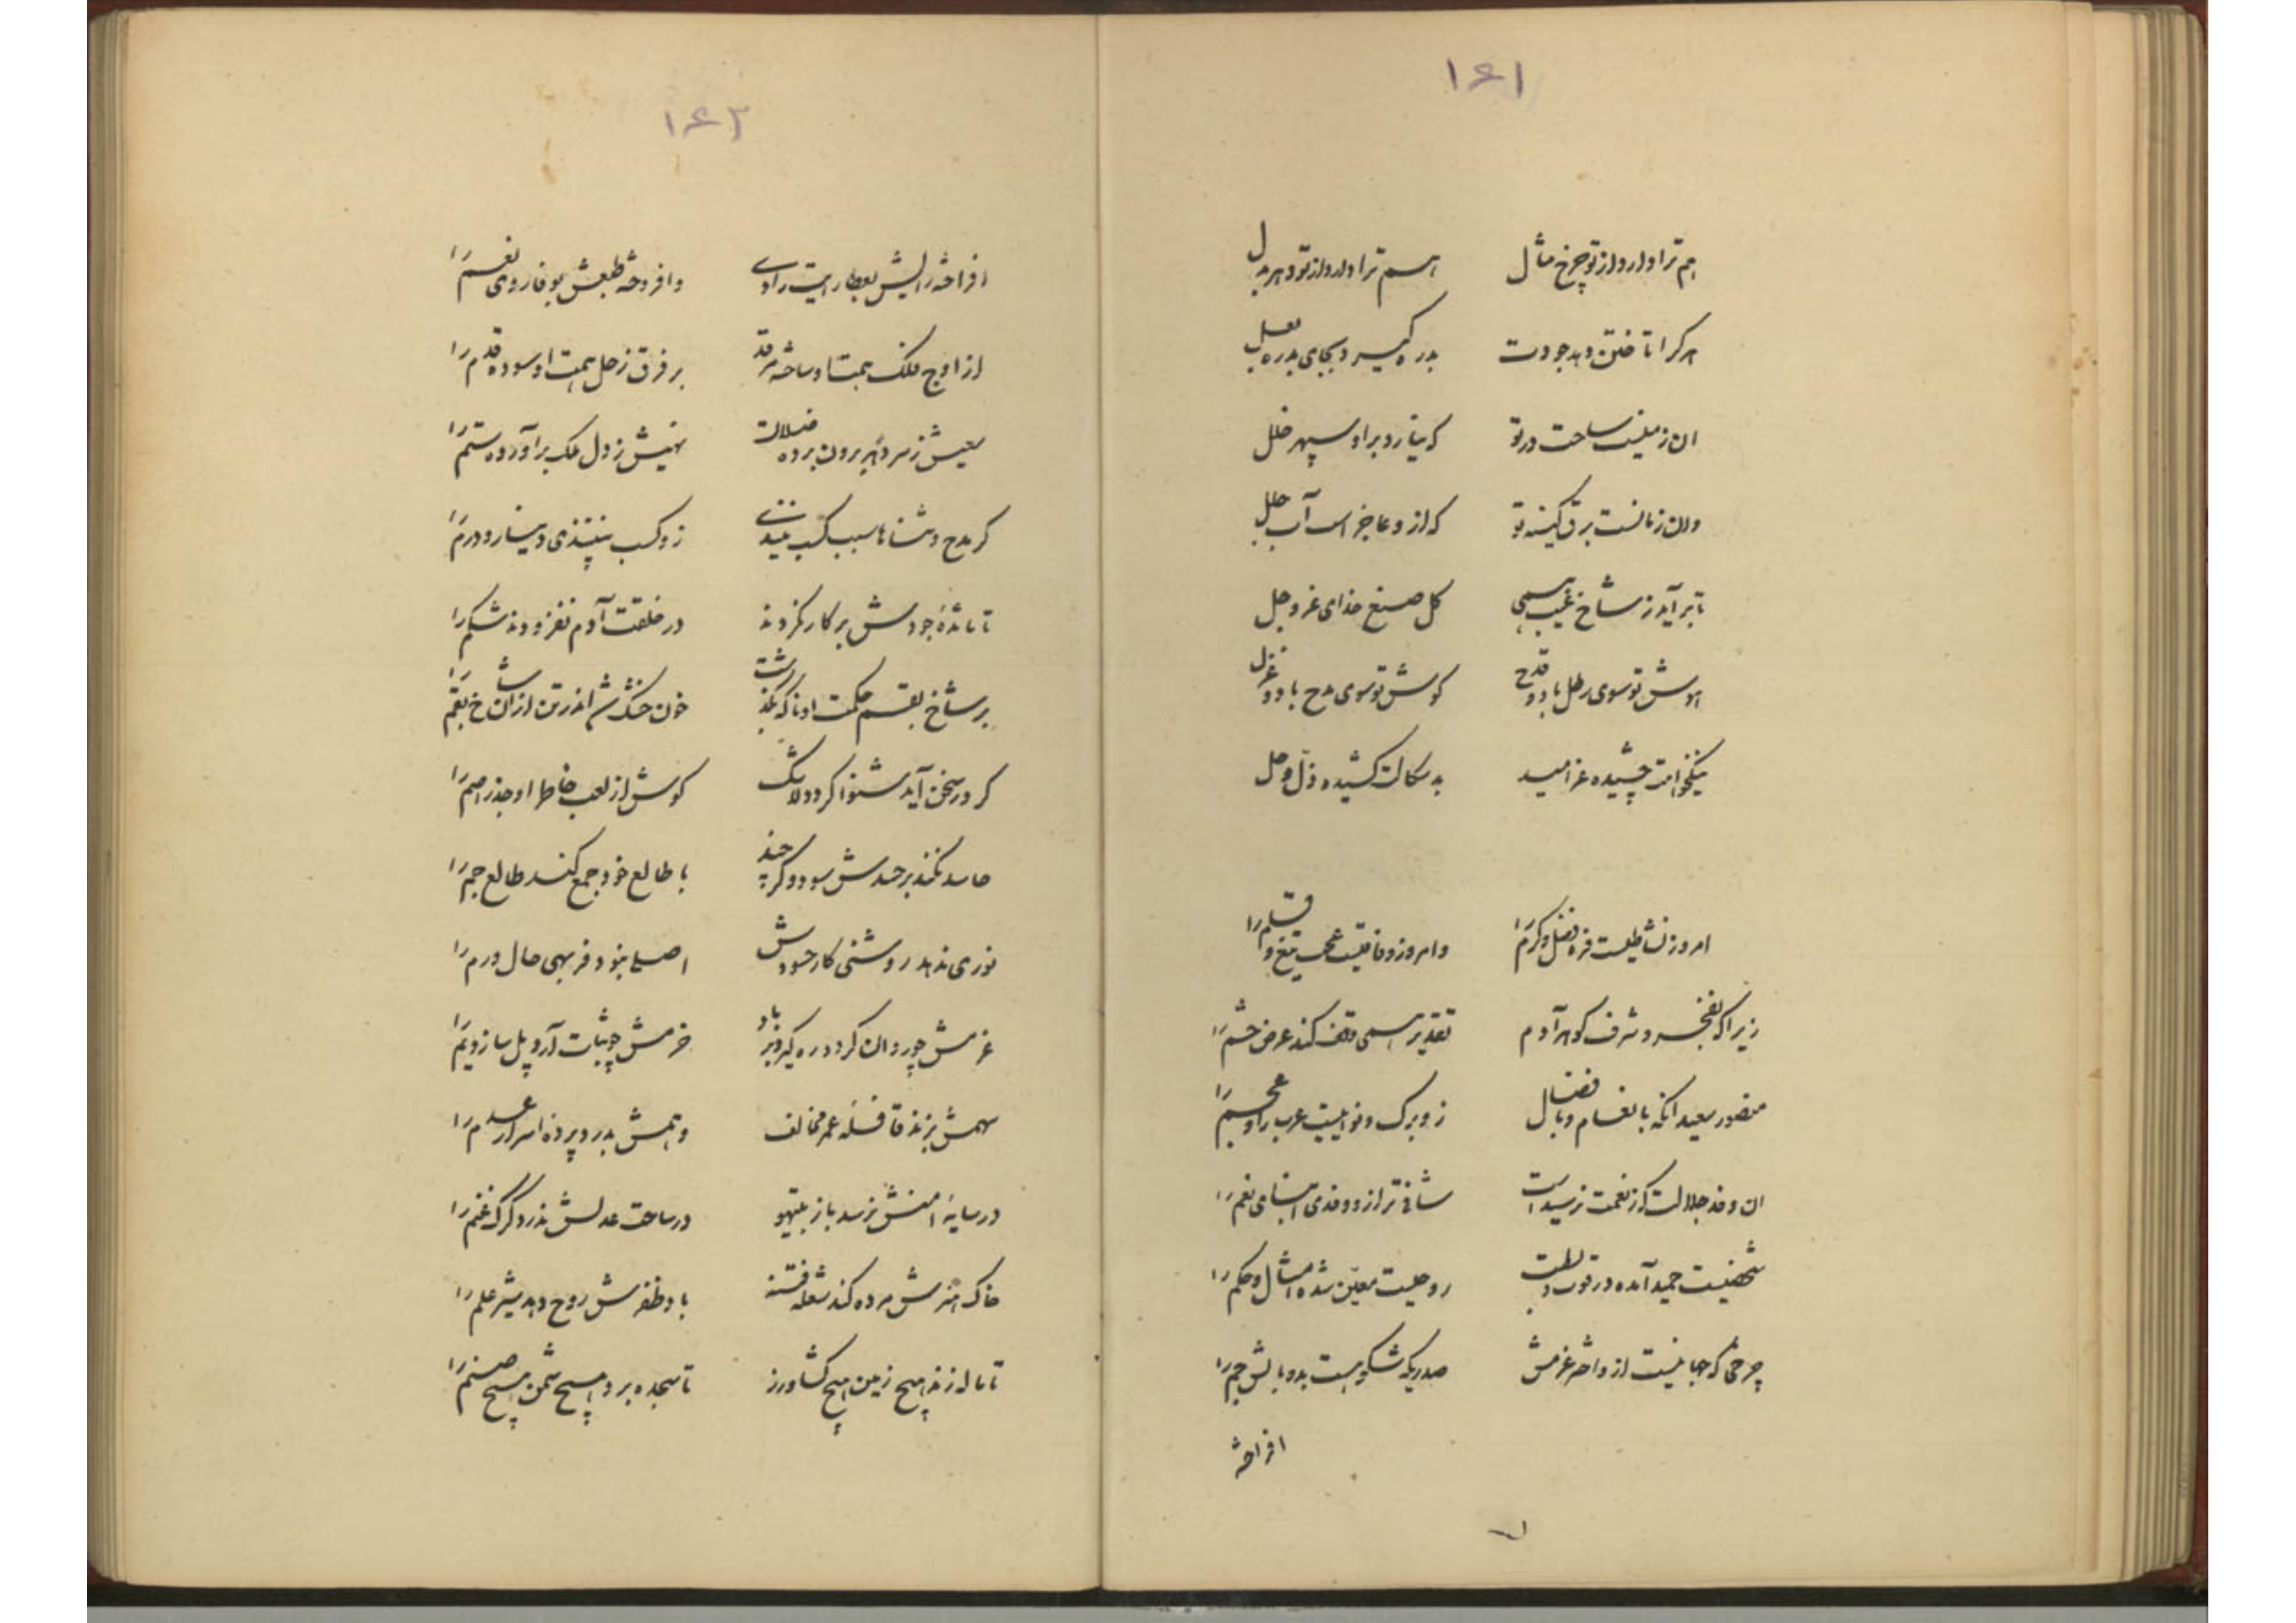 ۱۶۱
هم ترا دارد از تو چرخ مثال اسم ترا دارد از تو دهر بدل
هر کرا تاختن دهد جودت بدره گیرد بجای بدره بغل
ان زمینست ساحت در تو که نیارد براو سپهر خلل
وان زمانست برق کینه تو که ازو عاجز است آب حلل
تا برآید ز شاخ غیب همی کل صنع خدای عز و جل
هوش تو سوی رطل باد و قدح کوش تو سوی مدح باد و غزل
نیکخواهت چشیده عز امید بدسکالت کشیده ذل وجل
امروز نشاطیست فره فضل و کرم را وامروز وفاقیست عجب تیغ و قلم را
زیرا که بفخر و شرف کوهر آدم تقدیر همی وقف کند عرض حشم را
منصور سعید انکه بانعام و بافضال زو برک و نوا یست عرب را و عجم را
ان وفد جلالت که ز نعمت نرسید است شافی تر ازو وفدی ابنای نعم را
شخصیست حمید آمده در قوت و در لطف روحیست معین شده امثال و حکم را
چرخی که جهانیست از واختر عزمش صدریکه شکوهیست بدو بالش جم را
افراخته
۱۶۲
افراخته رایش بعطا رایت رادی وافروخته طبعش بوفا روی نعم را
از اوج فلک همت او ساخته مرقد بر فرق زحل همت او سوده قدم را
سعیش ز سر دهر برون برده ضلالت نهیش ز دل ملک برآورده ستم را
کر مدح و ثنا را سبب کسب نبیند زو کسب نبیندی دینار و درم را
تا مائدهٔ جودش بر کار نکردند در خلقت آدم نفزودند شکم را
بر شاخ بقم حکمت او ناکه بگذشت خون خشک شد اندر تن ازان شاخ بقم را
کر در سخن آید شنوا کردد لاشک کوش از لعب خاطر او جذر اصم را
حاسد نکند بر حسدش سود و کر چند با طالع خود جمع کند طالع جم را
نوری ندهد روشنی کار حسودش اصلی نبود فربهی حال ورم را
عزمش چو روان کردد ره کیرد بر باد حزمش چو ثبات آرد پل سازد یم را
سهمش بزند قافلهٔ عمر مخالف وهمش بدرد پردهٔ اسرار عدم را
در سایهٔ امنش نرسد باز بتیهو در ساحت عدلش ندرد کرک غنم را
خاک هنرش مرده کند شعله فتنه باد ظفرش روح دهد شیر علم را
تا ناله ز ند هیچ زمین هیچ کشاورز تا سجده برد هیچ شمن هیچ صنم را